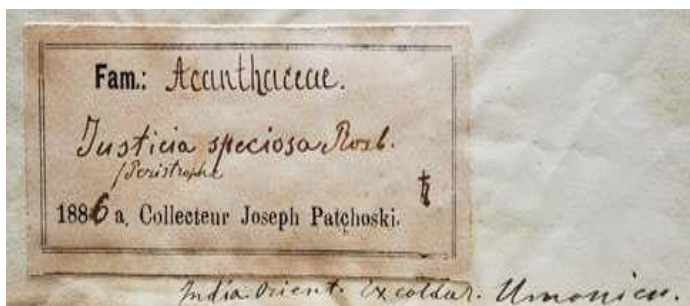 Fam.: Acanthaceae.
Justicia speciosa Roxb.
/Peristrophe
1886 a. Collecteur Joseph Patchoski.
India Orient. Ex